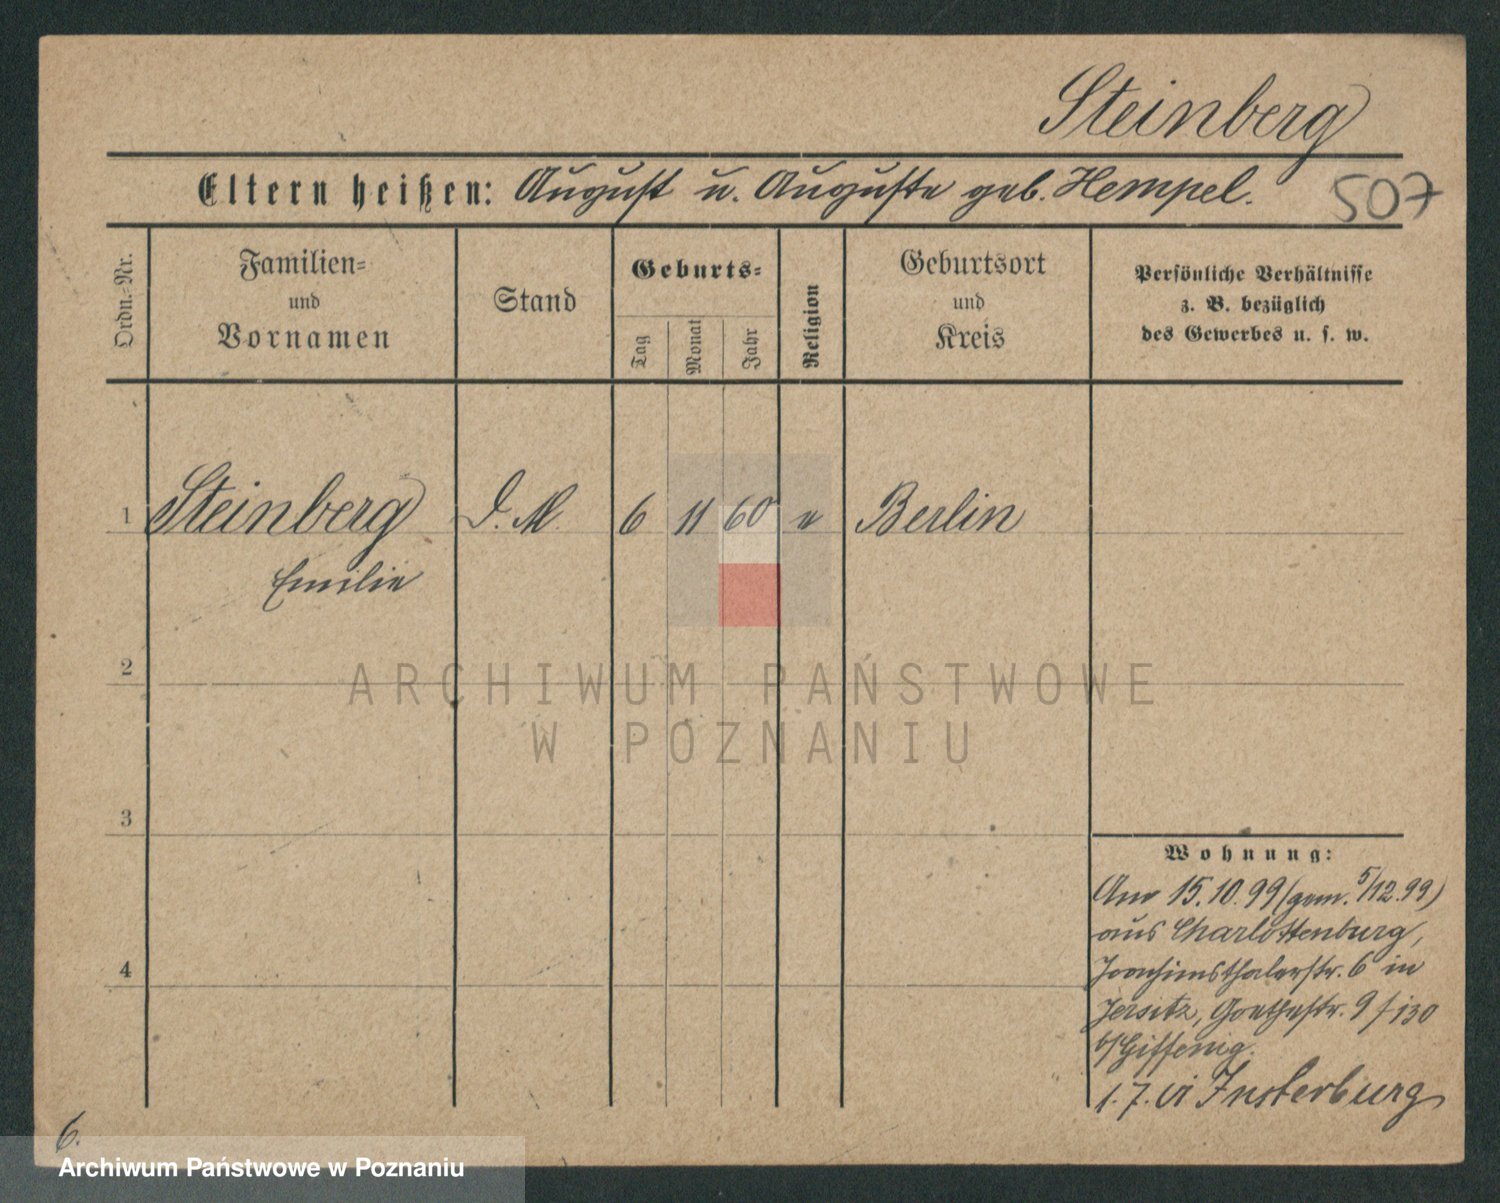 Steinberg
Eltern heißen: August u. Auguste geb. Hempel.
507
Ordn.-Nr.
Familien-
und
Vornamen
Stand
Geburts-
Tag
Monat
Jahr
Religion
Geburtsort
und
Kreis
Persönliche Verhältnisse
z. B. bezüglich
des Gewerbes u. s. w.
1 Steinberg D. M. 6 11 60 e Berlin
Emilie
2
ARCHIWUM PAŃSTWOWE
W POZNANIU
3
4
Wohnung:
Am 15.10.99 (gem. 5/12.99)
aus Charlottenburg,
Joachimsthalerstr. 6 in
Jersitz, Goethestr. 9 / 130
b/
1.7. Insterburg
6.
Archiwum Państwowe w Poznaniu